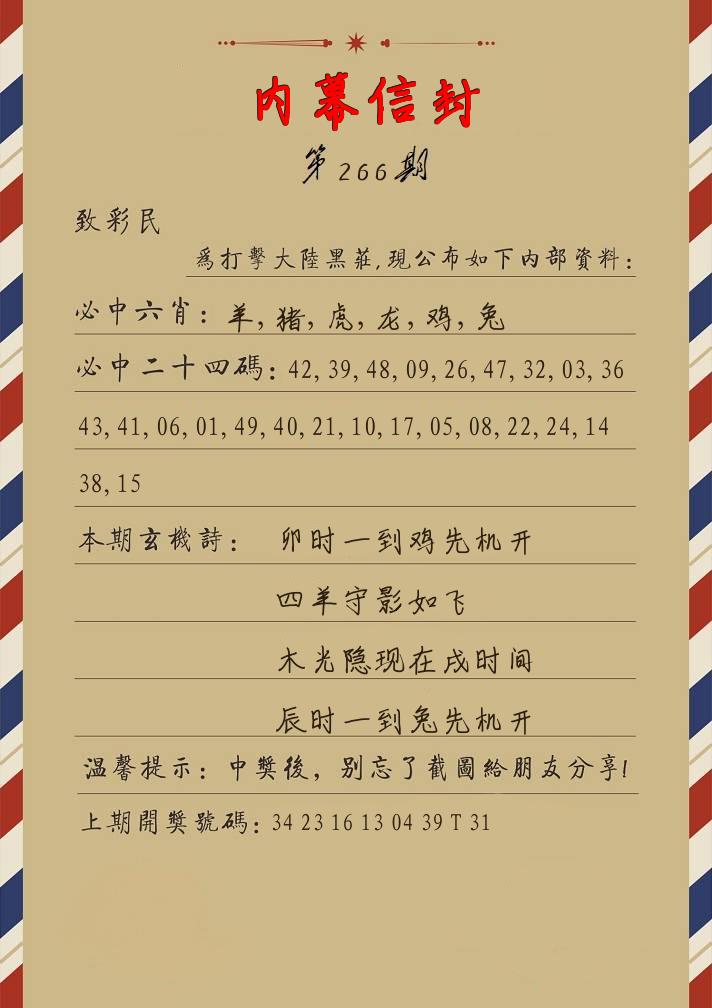 内幕信封
第266期
致彩民
爲打擊大陸黑莊,現公布如下内部資料:
必中六肖:羊,猪,虎,龙,鸡,兔
必中二十四碼:42,39,48,09,26,47,32,03,36
43,41,06,01,49,40,21,10,17,05,08,22,24,14
38,15
本期玄機詩: 卯时一到鸡先机开
四羊守影如飞
木光隐现在戌时间
辰时一到兔先机开
温馨提示:中獎後,别忘了截圖給朋友分享!
上期開獎號碼:34 23 16 13 04 39 T 31